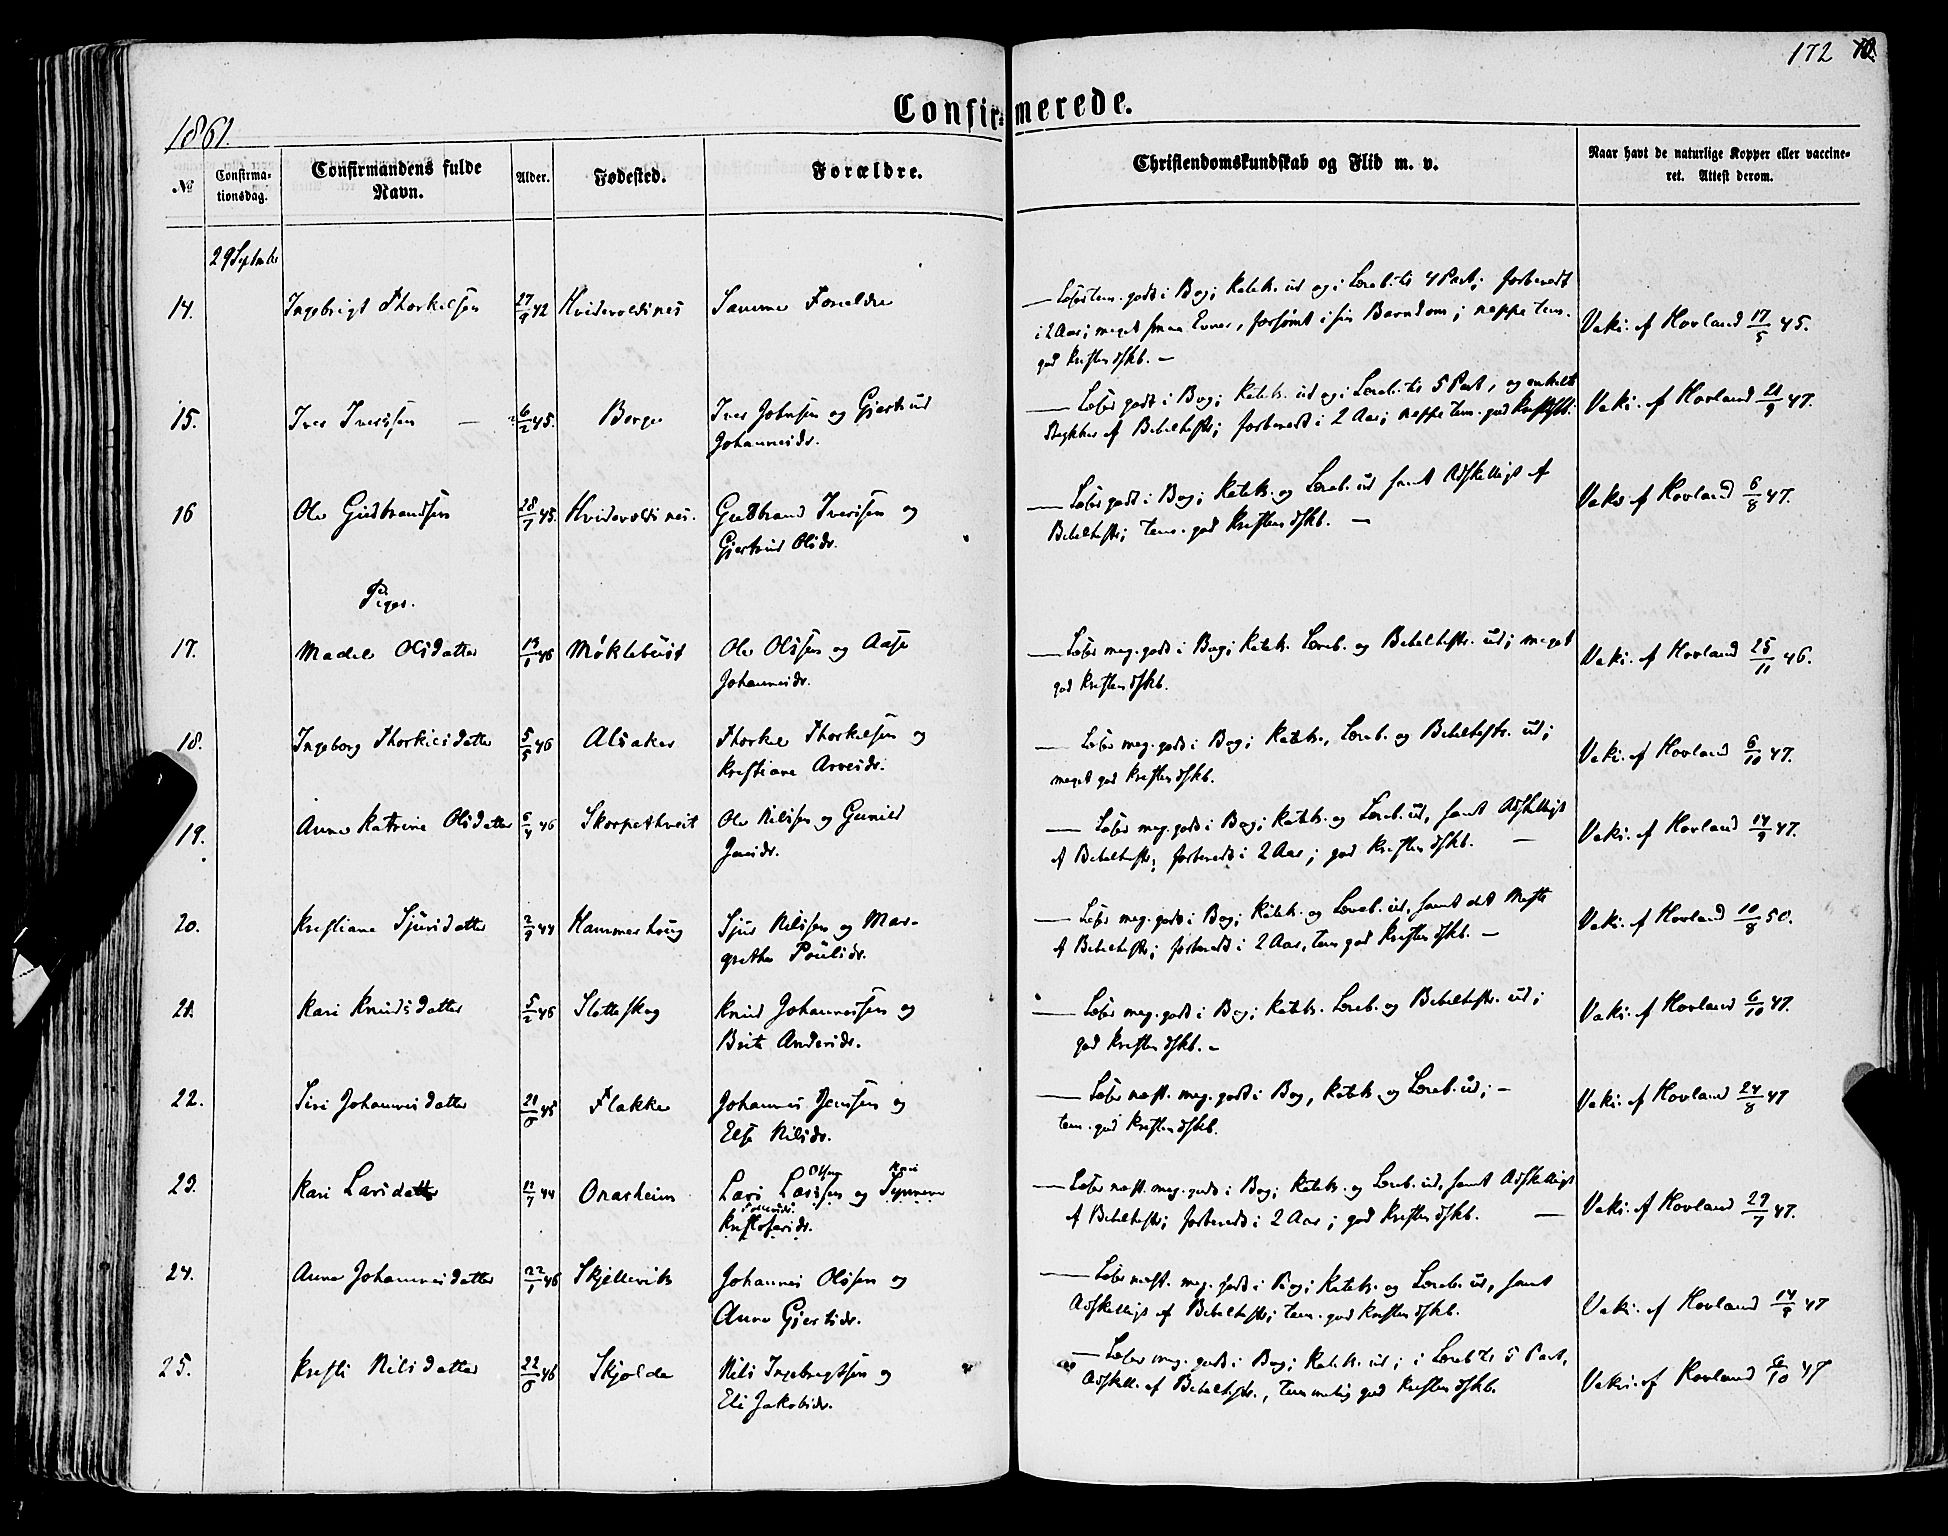 172
1861.
Confirmerede.
№
Confirma-
tionsdag.
Confirmandens fulde
Navn.
Alder.
Fødested.
Forældre.
Christendomskundskab og Flid m. v.
Naar havt de naturlige Kopper eller vaccine-
ret. Attest derom.
29 September
14. Ingebrigt Thorkelsen 27/9 42 Hvidevoldsnes Samme Forældre
Læser tem. godt i Bog; Katek. ud og i Loreb. til 4 Part; forberedt
i 2 Aar; meget smaa Evner, forsømt i sin Barndom; neppe tem.
god Kristendskb. —
Vaki. af Hovland 17/5 45.
15. Iver Iversen 6/2 45. Berge Iver Johnsen og Gjertrud
Johannesdr.
Læser godt i Bog; Katek. ud og i Loreb. til 5 Part, og enkelte
Stykker af Bibelhistr; forberedt i 2 Aar; neppe tem. god Kristdskb.
Vaki. af Hovland 21/9 47.
16 Ole Gudbrandsen 28/7 45. Hvidevoldsnes. Gudbrand Iversen og
Gjertrud Olsdr.
Læser godt i Bog; Katek. og Loreb. ud samt Adskilligt af
Bibelhistr; tem. god Kristendskb. —
Vaki af Hovland 6/8 47.
Piger.
17. Madel Olsdatter 13/1 46 Møklebust Ole Olsen og Aase
Johannesdr.
Læser meg. godt i Bog; Katek. Loreb. og Bibelhistr. ud; meget
god Kristendskb.
Vaki. af Hovland 25/11 46.
18. Ingeborg Thorkilsdatter 5/5 46 Alsaker Thorkel Thorkelsen og
Kristiane Arnesdr.
Læser meg. godt i Bog; Katek., Loreb. og Bibelhistr. ud;
meget god Kristendskb.
Vaki. af Hovland 6/10 47.
19. Anne Katrine Olsdatter 6/4 46 Skorpethveit Ole Nilsen og Gunild
Jensdr.
Læser meg. godt i Bog; Katek. og Loreb. ud, samt Adskilligt
af Bibelhistr; forberedt i 2 Aar; god Kristendskb. —
Vaki. af Hovland 14/9 47.
20. Kristiane Sjursdatter 2/9 44 Hammerhoug Sjur Nilsen og Mar-
grethe Poulsdr.
Læser meg. godt i Bog; Katek. og Loreb. ud, samt det Meste
af Bibelhistr; forberedt i 2 Aar, tem god Kristendskb. —
Vaki. af Hovland 10/8 50.
21. Kari Knudsdatter 5/2 46 Sletteskog Knud Johannesen og
Brita Andersdr.
Læser meg. godt i Bog; Katek. Loreb. og Bibelhistr. ud;
god Kristendskb. —
Vaki. af Hovland 6/10 47.
22. Siri Johannesdatter 45 Flakke Johannes Jensen og
Else Nilsdr.
Læser næst. meg. godt i Bog, Katek. og Loreb. ud; —
tem. god Kristendskb.
Vaki. af Hovland 24/8 47
23. Kari Larsdatter 44 Onarheim Lars Larssen og Synneve
Kristofersdr.
Læser næst. meg. godt i Bog; Katek. og Loreb. ud, samt Adskilligt
af Bibelhistr; forberedt i 2 Aar; god Kristendskb. —
Vaki. af Hovland 29/7 47.
24. Anne Johannesdatter 22/1 46 Skjellevik Johannes Olsen og
Anne Gjertsdr.
Læser næst. meg. godt i Bog; Katek. og Loreb. ud, samt
Adskilligt af Bibelhistr; tem. god Kristendskb.
Vaki. af Hovland 14/9 47
25. Kristi Nilsdatter 46 Skjolde Nils Ingebrigtsen og
Eli Jakobsdr.
Læser meg. godt i Bog; Katek. ud; i Loreb til 5 Part,
Adskill. af Bibelhistr., temmelig god Kristendskb.
Vaki. af Hovland 6/10 47